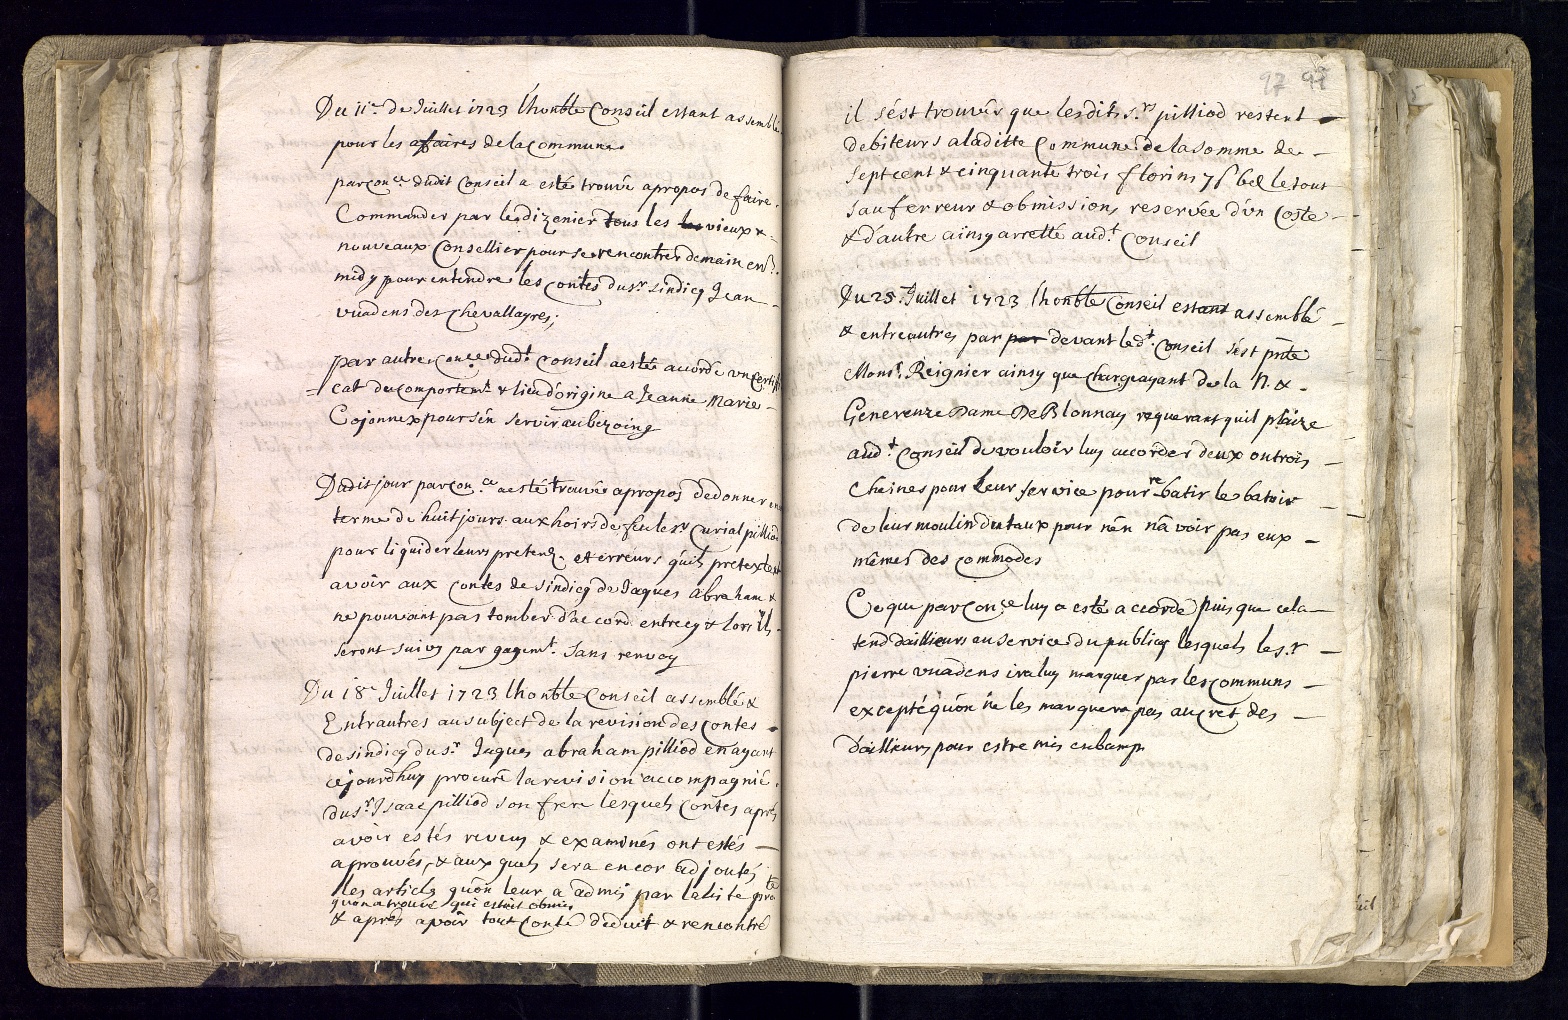 Du 11e de Juillet 1723 l'honble Conseil estant assemblé
pour les affaires de la Commune.
par conce dudit Conseil a esté trouvé apropos de faire
Commander par les dizenier tous les vieux &
nouveaux Consellier pour se rencontrer demain
midy pour entendre les contes du sr sindicq Jean
vuadens des Chevallayres;
par autre conce dudt Conseil a esté accordé un certifi
cat de comportemt & lieu d'origine a Jeanne Marie
Cojonnex pour s'en servir au bezoing
Dudit jour par conce a esté trouvé apropos de donner un
terme de huit jours aux hoirs de feu le sr Curial pilliod
pour liquider leurs pretens. et erreurs qu'ils pretextent
avoir aux contes de sindicq de Jaques Abraham &
ne pouvant pas tomber d'accord entrecy & lors ils
seront suivy par gagemt. sans renvoy
Du 18e Juillet 1723 l'honble Conseil assemblé &
Entrautres au subject de la revision des Contes
de sindicq du sr Jaques abraham pilliod en ayant
cejourdhuy procuré la revision accompagnié
du sr Isaac pilliod son frere lesquels Contes apres
avoir estés reveus & examinés ont estés
aprouvés, & aux quels sera encor adjoutés
les articles qu'on leur a admis par laliste
quon a trouvé qui estoit obmis
& aprés avoir tout conté deduit & rencontré
97 97
il s'est trouvés que lesdits srs pilliod restent
debiteurs a laditte Commune de la somme de
sept cent & cinquante trois florins 7 s bel le tout
sauf erreur & obmission, reservée d'un coste
& d'autre ainsy arretté audt Conseil
Du 25e Juillet 1723 l'honble Conseil estant assemblé
& entreautres par par devant ledt. Conseil s'est pnte
Monsr. Reignier ainsy que chargeayant de la N. &
Genereuze Dame De Blonnay requerant quil plaize
audt Conseil de vouloir luy accorder deux ou trois
Chesnes pour leur service pour rebatir le batoir
de leur moulin du taux pour n'en n'avoir pas eux
mêmes des commodes
Ce que par Conce luy a esté accordé puis que cela
tend d'aillieurs au service du publicq lesquels le sr
pierre vuadens ira luy marquer par les communs
excepté qu'on ne les marquera pas au cret des
d'aillieurs pour estre mis en bamp